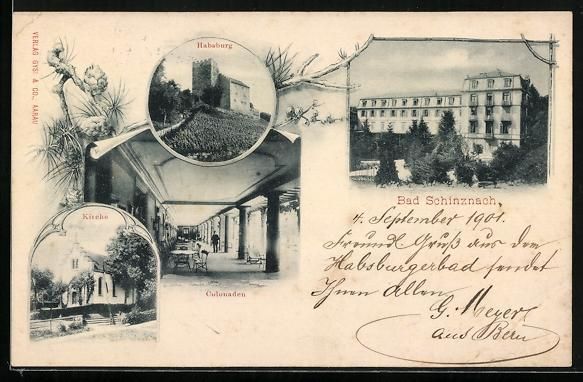 VERLAG GYSI & Co., AARAU
Habsburg
Bad Schinznach.
Kirche
Colonaden
4. September 1901.
Freundl. Gruß aus dem
Habsburgerbad sendet
Ihnen Allen
G. Meyer
aus Bern